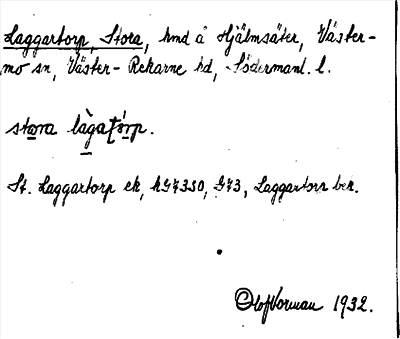 Laggartorp, Stora, hmd å Hjälmsäter, Väster-
mo sn, Väster-Rekarne hd, Södermanl. l.
stora làgaʈórp.
St. Laggartorp ek, hG7350, G73, Laggartorp ber.
Olof Norman 1932.